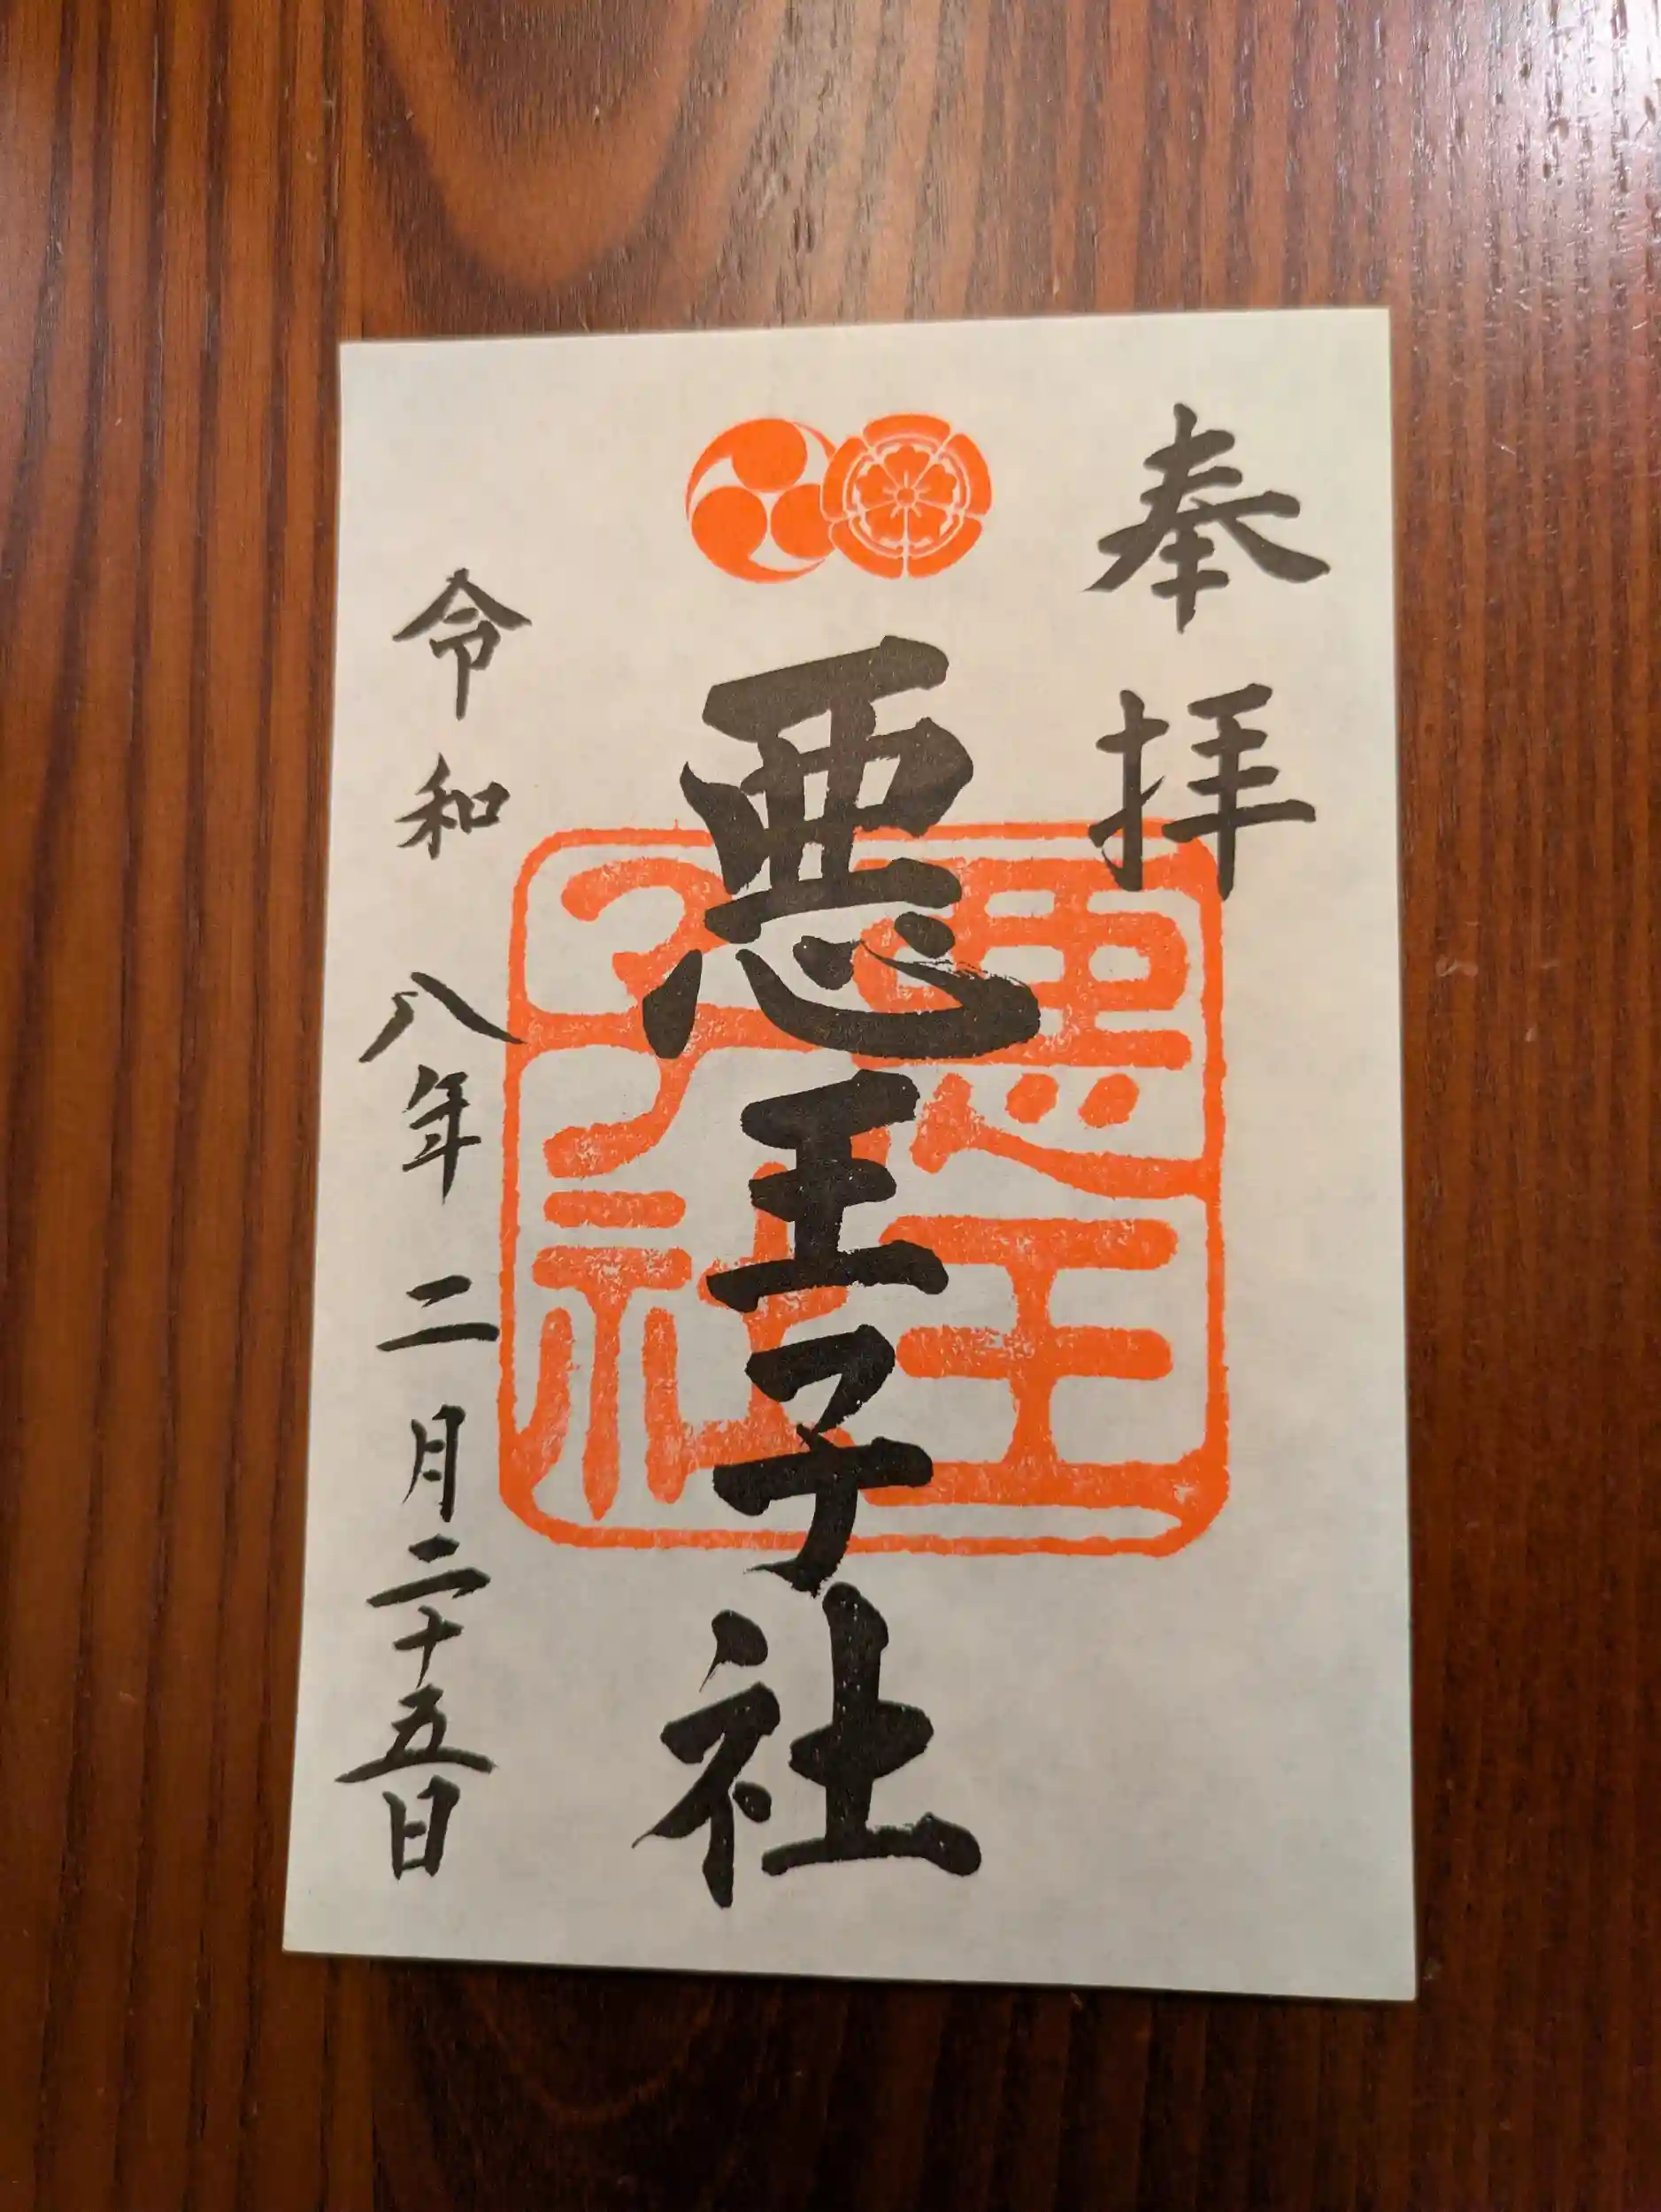 奉拝
悪王子社
悪王子社
令和八年二月二十五日